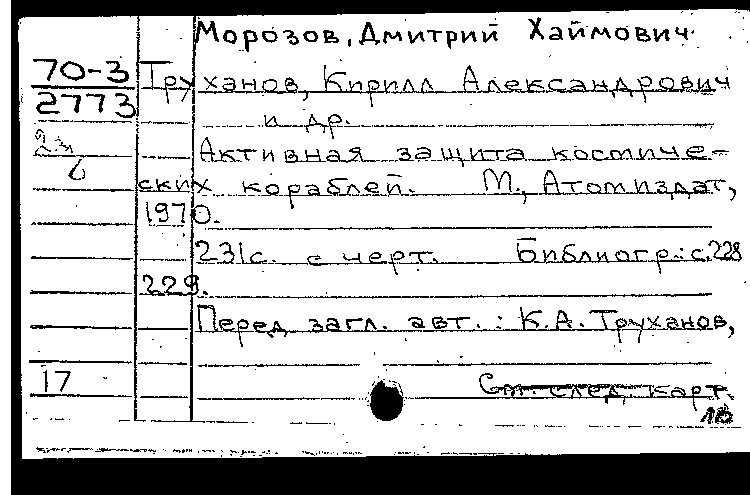 Морозов, Дмитрий Хаймович
70-3
2773
Труханов, Кирилл Александрович
и др.
Активная защита косmиче-
ских кораблей. М., Атомиздат,
1970.
231с. с черт. Библиогр.: с.228
229.
Перед загл. авт.: К.А. Труханов,
17
См. след. карт.